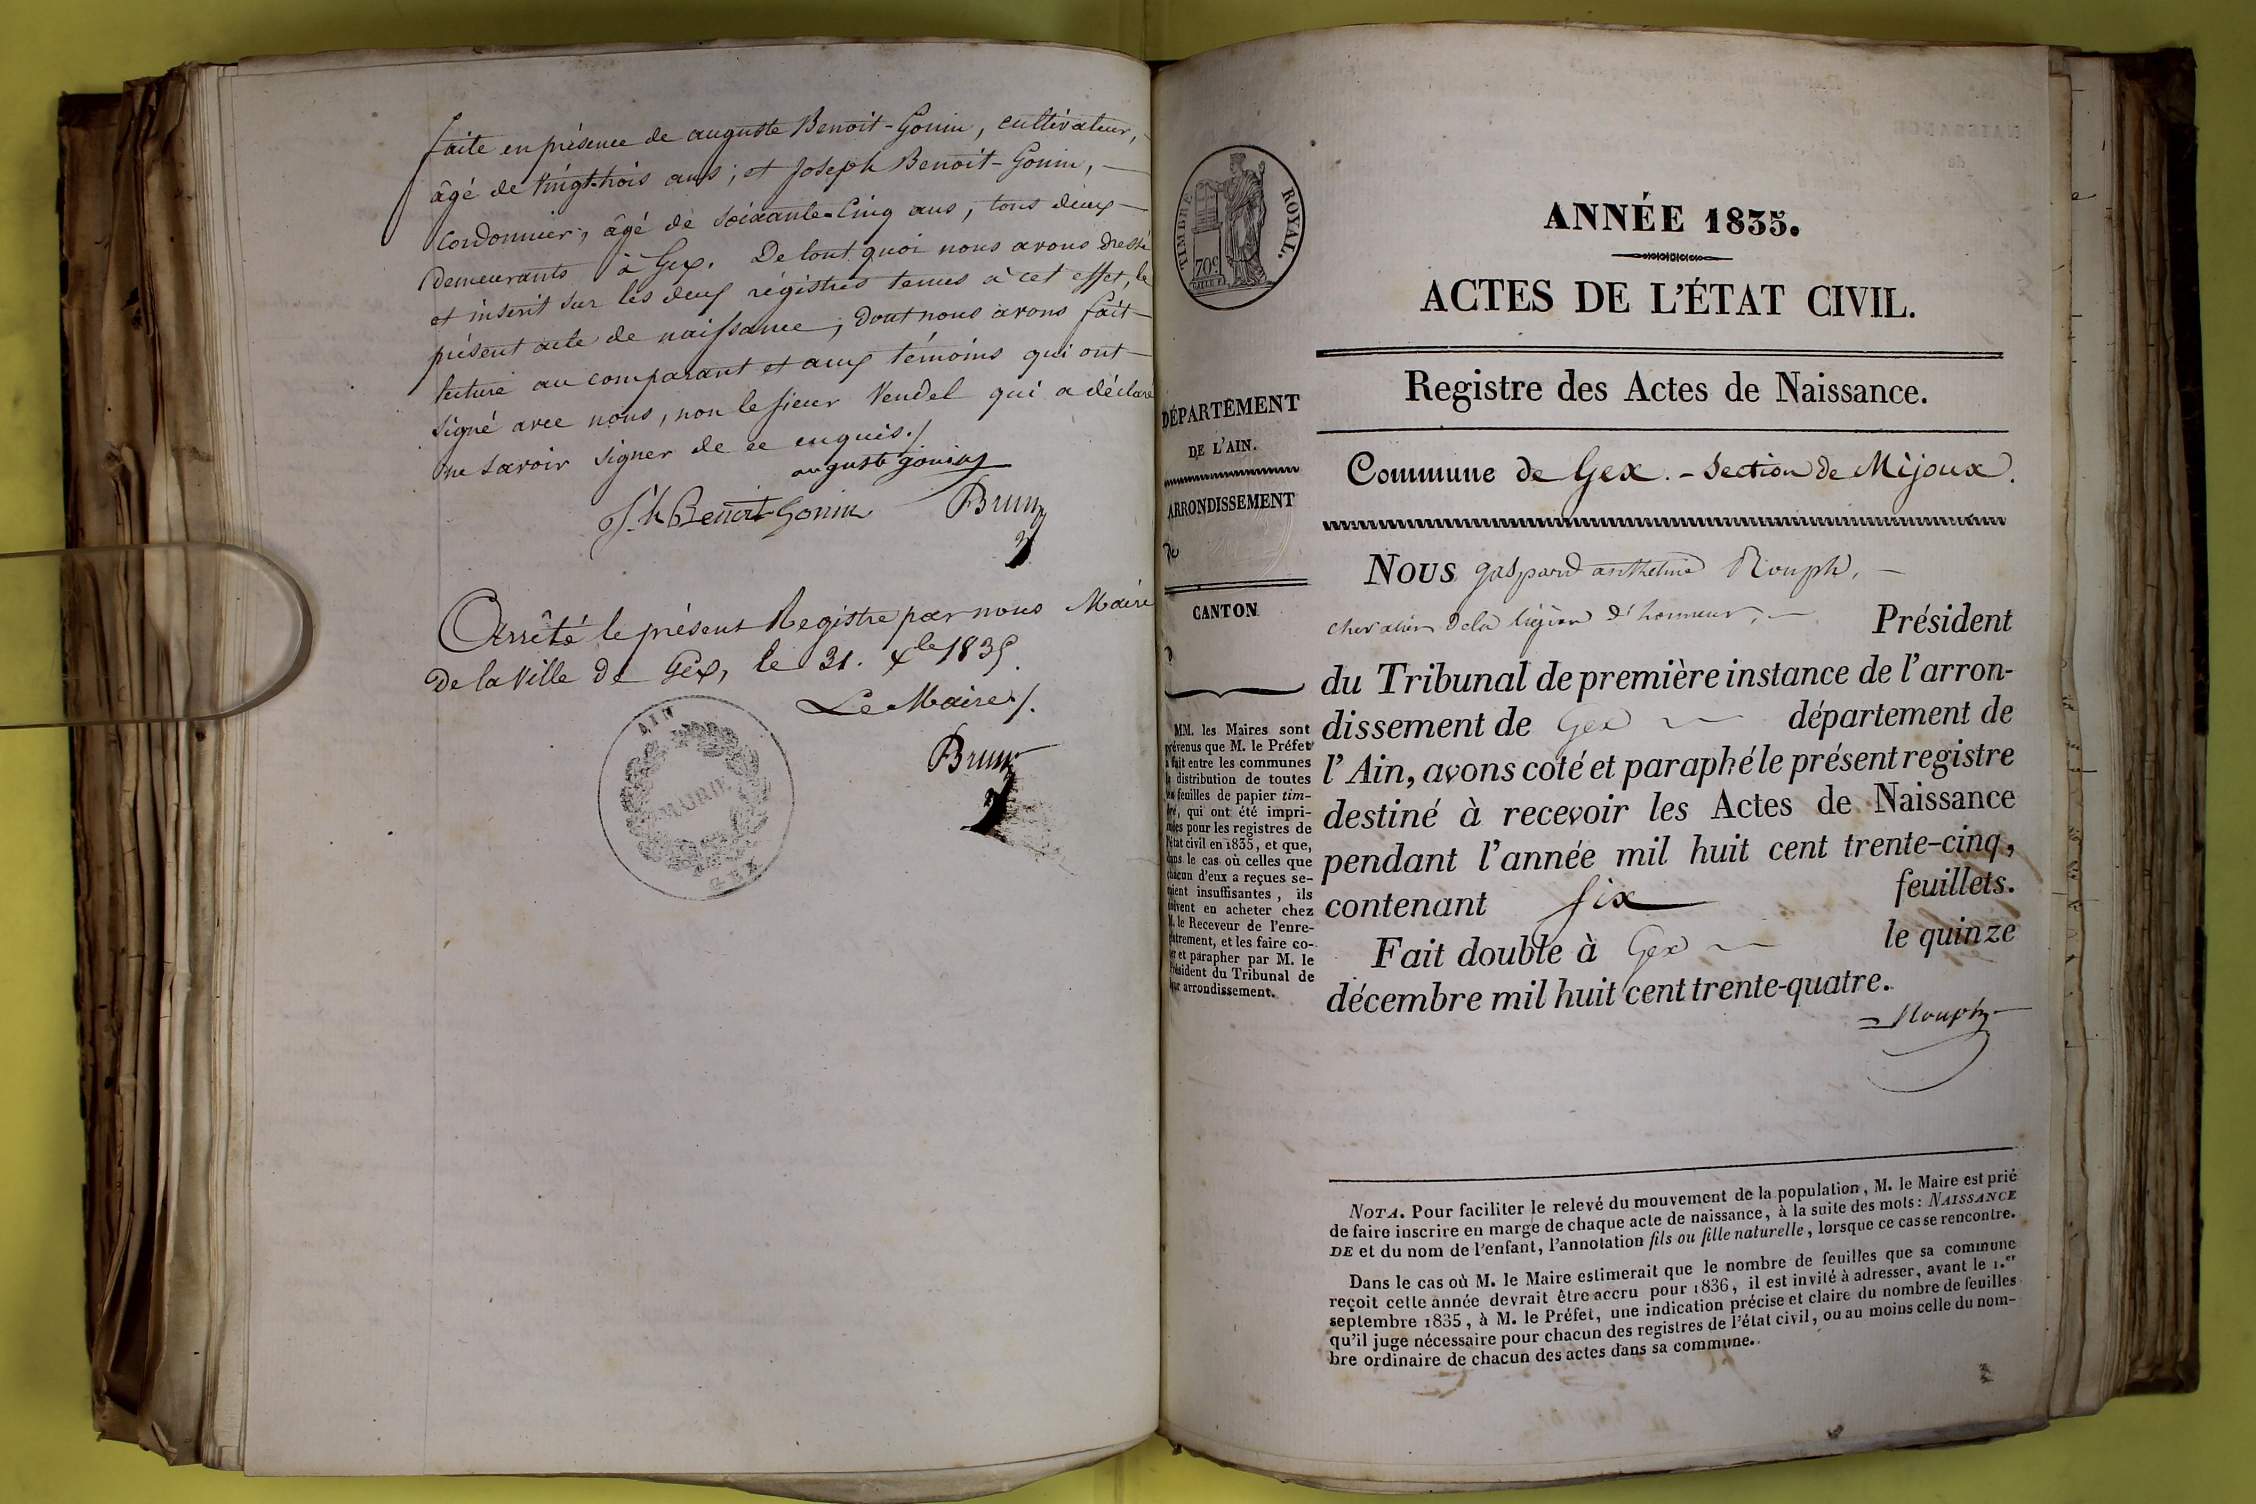 faite en présence de auguste Benoit-Gonin, cultivateur,
âgé de vingt-trois ans; et Joseph Benoit-Gonin,
Cordonnier, âgé de soixante-Cinq ans, tous deux
demeurants à Gex. De tout quoi nous avons dressé
et inscrit sur les deux régistres tenus à cet effet, le
présent acte de naissance, dont nous avons fait
lecture au comparant et aux témoins qui ont
signé avec nous, non le sieur Vendel qui a déclaré
ne savoir signer de ce enquis./
auguste gonin
Jh Benoit Gonin Brun
Arrêté le présent Registre par nous Maire
De la Ville de Gex, le 31. Xbre 1835.
Le Maire/.
Brun
AIN
MAIRIE
GEX
TIMBRE ROYAL.
70c
ANNÉE 1835.
ACTES DE L'ÉTAT CIVIL.
Registre des Actes de Naissance.
Commune de Gex. - Section de Mijoux.
DÉPARTEMENT
DE L'AIN.
ARRONDISSEMENT
de
CANTON
MM. les Maires sont
prévenus que M. le Préfet
a fait entre les communes
la distribution de toutes
les feuilles de papier tim-
bré, qui ont été impri-
mées pour les registres de
l'état civil en 1835, et que,
dans le cas où celles que
chacun d'eux a reçues se-
raient insuffisantes, ils
doivent en acheter chez
M. le Receveur de l'enre-
gistrement, et les faire co-
ter et parapher par M. le
Président du Tribunal de
leur arrondissement.
Nous gaspard anthelme Rouph,
chevalier de la légion d'honneur, Président
du Tribunal de première instance de l'arron-
dissement de Gex département de
l'Ain, avons coté et paraphé le présent registre
destiné à recevoir les Actes de Naissance
pendant l'année mil huit cent trente-cinq,
contenant six feuillets.
Fait double à Gex le quinze
décembre mil huit cent trente-quatre.
Rouph
NOTA. Pour faciliter le relevé du mouvement de la population, M. le Maire est prié
de faire inscrire en marge de chaque acte de naissance, à la suite des mots: NAISSANCE
DE et du nom de l'enfant, l'annotation fils ou fille naturelle, lorsque ce cas se rencontre.
Dans le cas où M. le Maire estimerait que le nombre de feuilles que sa commune
reçoit cette année devrait être accru pour 1836, il est invité à adresser, avant le 1.er
septembre 1835, à M. le Préfet, une indication précise et claire du nombre de feuilles
qu'il juge nécessaire pour chacun des registres de l'état civil, ou au moins celle du nom-
bre ordinaire de chacun des actes dans sa commune.